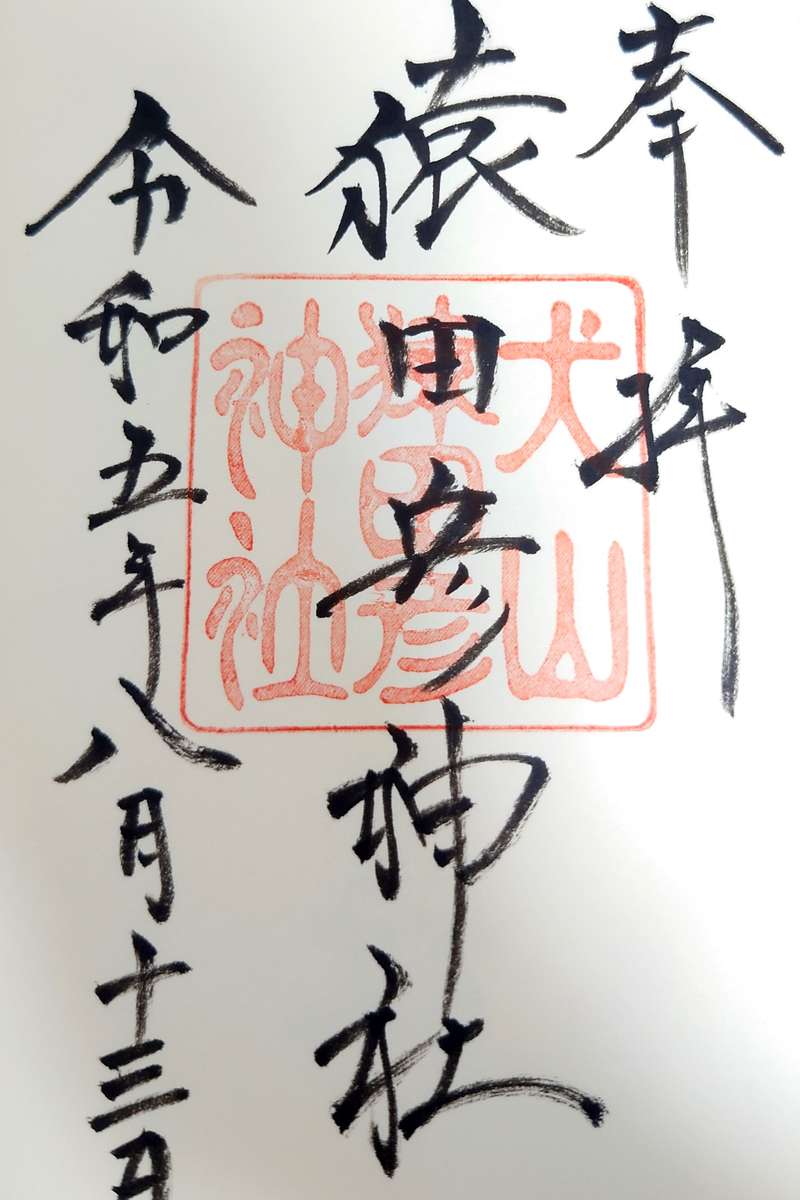 奉拝
猿田彦神社
令和五年八月十三日
犬山
猿田彦
神社